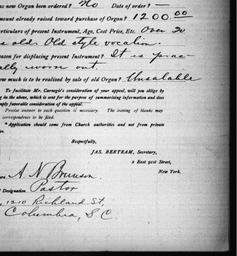 new Organ been ordered? No Date of order? —
mount already raised toward purchase of Organ? 1200.00
articulars of present Instrument, Age, Cost Price, Etc. Over 20
s old. Old style vocalion.
eason for displacing present Instrument? It is prac
ally worn out
ow much is to be realised by sale of old Organ? Unsalable
To facilitate Mr. Carnegie's consideration of your appeal, will you oblige by
g in the above, which is sent for the purpose of summarising information and dis
ply favorable consideration of the appeal.
Precise answer to each question is necessary. The issuing of blanks may
correspondence to be filed.
Application should come from Church authorities and not from private
Respectfully,
JAS. BERTRAM, Secretary,
2 East 91st Street,
New York.
A. N. Brunson
Designation. Pastor
1210 Richland St.
Columbia, S.C.